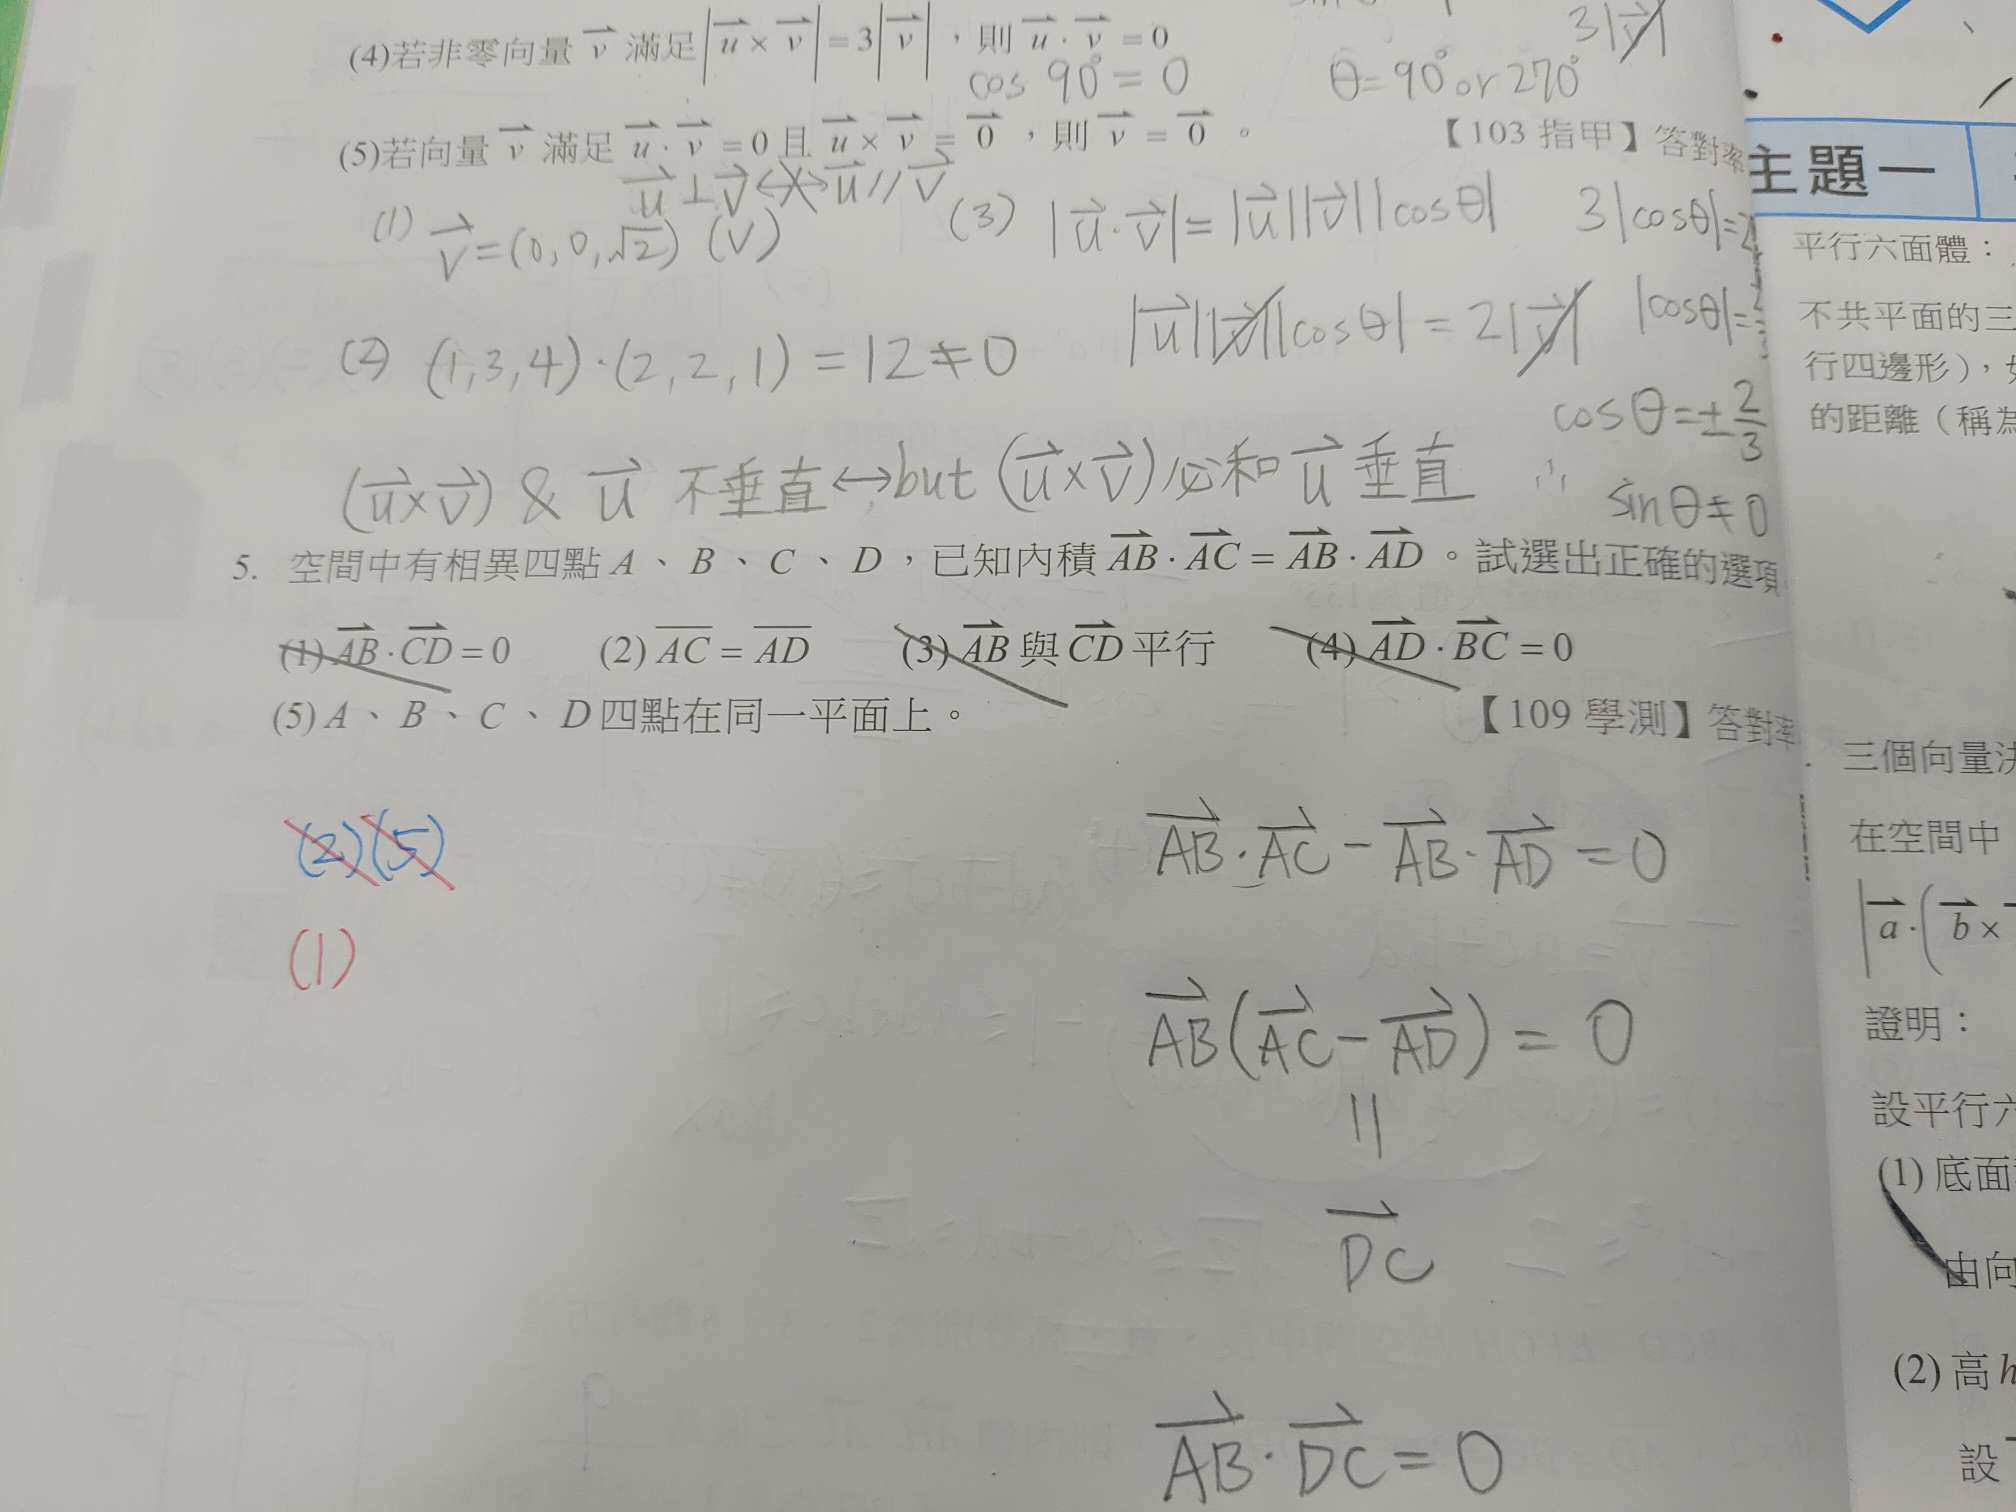 (4)若非零向量 v 滿足 |u × v| = 3|v|，則 u · v = 0
3|v|
cos 90° = 0
θ = 90° or 270°
(5)若向量 v 滿足 u · v = 0 且 u × v = 0，則 v = 0。
【103 指甲】答對率
u⊥v ↔ u // v
(1) v = (0, 0, √2) (V)
(3) |u · v| = |u||v||cosθ|
3|cosθ| = 2
|u||v||cosθ| = 2|v|
|cosθ| = 2/3
(2) (1, 3, 4) · (2, 2, 1) = 12 ≠ 0
cosθ = ± 2/3
(u×v) & u 不垂直 ↔ but (u×v) 必和 u 垂直
∴ sinθ ≠ 0
5. 空間中有相異四點 A、B、C、D，已知內積 AB · AC = AB · AD。試選出正確的選項
(1) AB · CD = 0 (2) AC = AD (3) AB 與 CD 平行 (4) AD · BC = 0
(5) A、B、C、D 四點在同一平面上。
【109 學測】答對率
(2)(5)
(1)
AB · AC − AB · AD = 0
AB(AC − AD) = 0
||
DC
AB · DC = 0
主題一
平行六面體：
不共平面的三
行四邊形)，
的距離（稱為
三個向量決
在空間中
|a · (b ×
證明：
設平行六
(1) 底面
由向
(2) 高 h
設